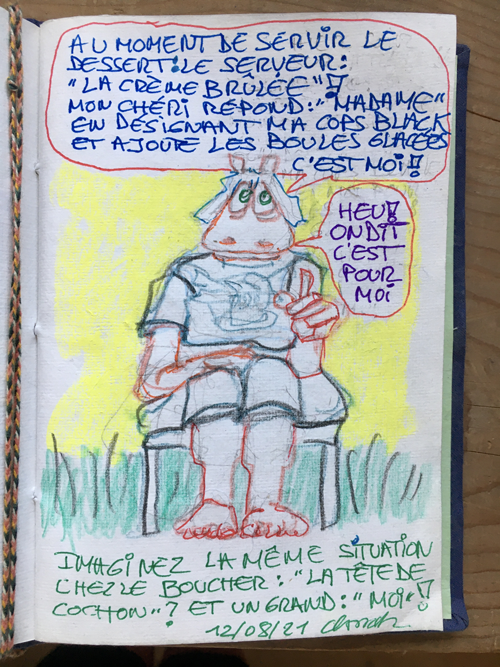 AU MOMENT DE SERVIR LE
DESSERT: LE SERVEUR:
"LA CRÈME BRÛLÉE"!
MON CHÉRI RÉPOND: "MADAME"
EN DÉSIGNANT MA COPS BLACK
ET AJOUTE LES BOULES GLACÉES
C'EST MOI!
HEU!
ON DIT
C'EST
POUR
MOI
IMAGINEZ LA MÊME SITUATION
CHEZ LE BOUCHER: "LA TÊTE DE
COCHON"? ET UN GRAND: "MOI"!
12/08/21